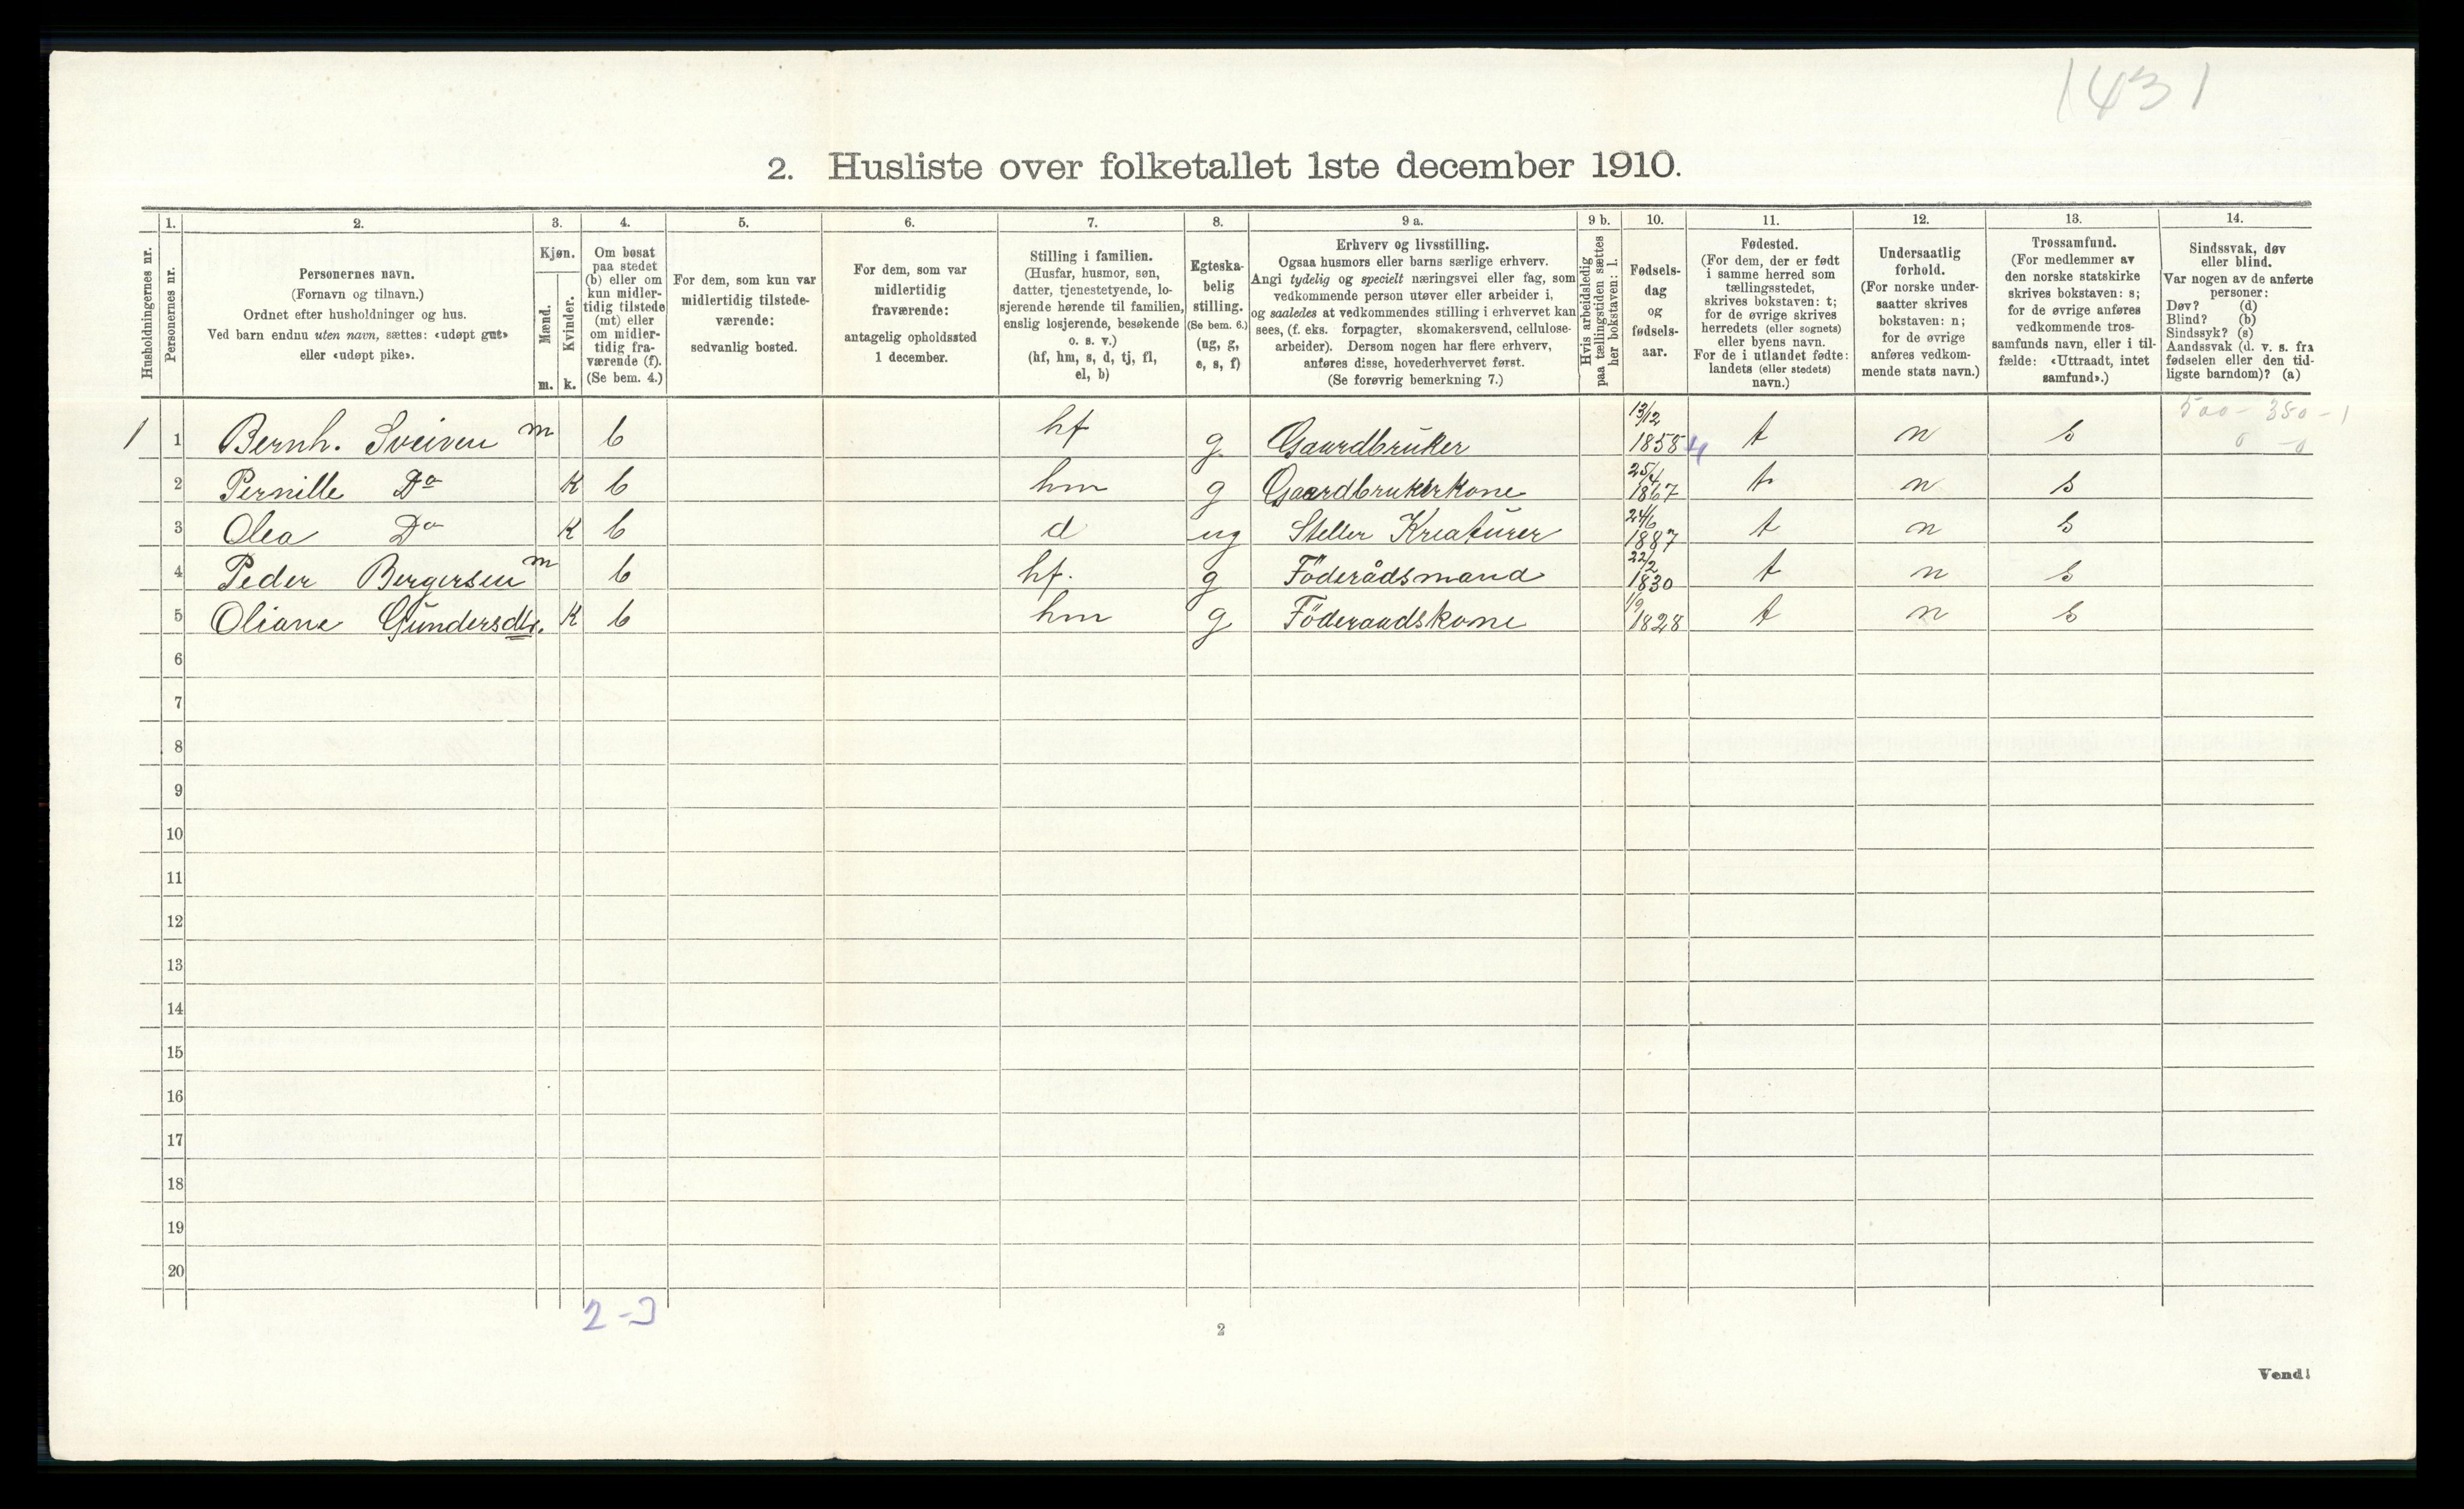 1431
2. Husliste over folketallet 1ste december 1910.
Husholdningernes nr.
1.
Personernes nr.
2.
Personernes navn.
(Fornavn og tilnavn.)
Ordnet efter husholdninger og hus.
Ved barn endnu uten navn, sættes: «udøpt gut»
eller «udøpt pike».
3.
Kjøn.
Mænd.
m.
Kvinder.
k.
4.
Om bosat
paa stedet
(b) eller om
kun midler-
tidig tilstede
(mt) eller
om midler-
tidig fra-
værende (f).
(Se bem. 4.)
5.
For dem, som kun var
midlertidig tilstede-
værende:
sedvanlig bosted.
6.
For dem, som var
midlertidig
fraværende:
antagelig opholdssted
1 december.
7.
Stilling i familien.
(Husfar, husmor, søn,
datter, tjenestetyende, lo-
sjerende hørende til familien,
enslig losjerende, besøkende
o. s. v.)
(hf, hm, s, d, tj, fl,
el, b)
8.
Egteska-
belig
stilling.
(Se bem. 6.)
(ug, g,
e, s, f)
9 a.
Erhverv og livsstilling.
Ogsaa husmors eller barns særlige erhverv.
Angi tydelig og specielt næringsvei eller fag, som
vedkommende person utøver eller arbeider i,
og saaledes at vedkommendes stilling i erhvervet kan
sees, (f. eks. forpagter, skomakersvend, cellulose-
arbeider). Dersom nogen har flere erhverv,
anføres disse, hovederhvervet først.
(Se forøvrig bemerkning 7.)
9 b.
Hvis arbeidsledig
paa tællingstiden sættes
her bokstaven: l.
10.
Fødsels-
dag
og
fødsels-
aar.
11.
Fødested.
(For dem, der er født
i samme herred som
tællingsstedet,
skrives bokstaven: t;
for de øvrige skrives
herredets (eller sognets)
eller byens navn.
For de i utlandet fødte:
landets (eller stedets)
navn.)
12.
Undersaatlig
forhold.
(For norske under-
saatter skrives
bokstaven: n;
for de øvrige
anføres vedkom-
mende stats navn.)
13.
Trossamfund.
(For medlemmer av
den norske statskirke
skrives bokstaven: s;
for de øvrige anføres
vedkommende tros-
samfunds navn, eller i til-
fælde: «Uttraadt, intet
samfund».)
14.
Sindssvak, døv
eller blind.
Var nogen av de anførte
personer:
Døv? (d)
Blind? (b)
Sindssyk? (s)
Aandssvak (d. v. s. fra
fødselen eller den tid-
ligste barndom)? (a)
1 1 Bernh. Sveiven m b hf g Gaardbruker 13/12 1858 4 t n s 500 - 350 - 1
0 - 0
2 Pernille Do K b hm g Gaardbrukerkone 25/4 1867 t n s
3 Olea Do K b d ug Steller Kreaturer 24/6 1887 t n s
4 Peder Bergersen m b hf. g Föderådsmand 22/2 1830 t n s
5 Oliane Gundersdtr. K b hm g Föderaadskone 1/9 1828 t n s
6
7
8
9
10
11
12
13
14
15
16
17
18
19
20
2-3
2
Vend!